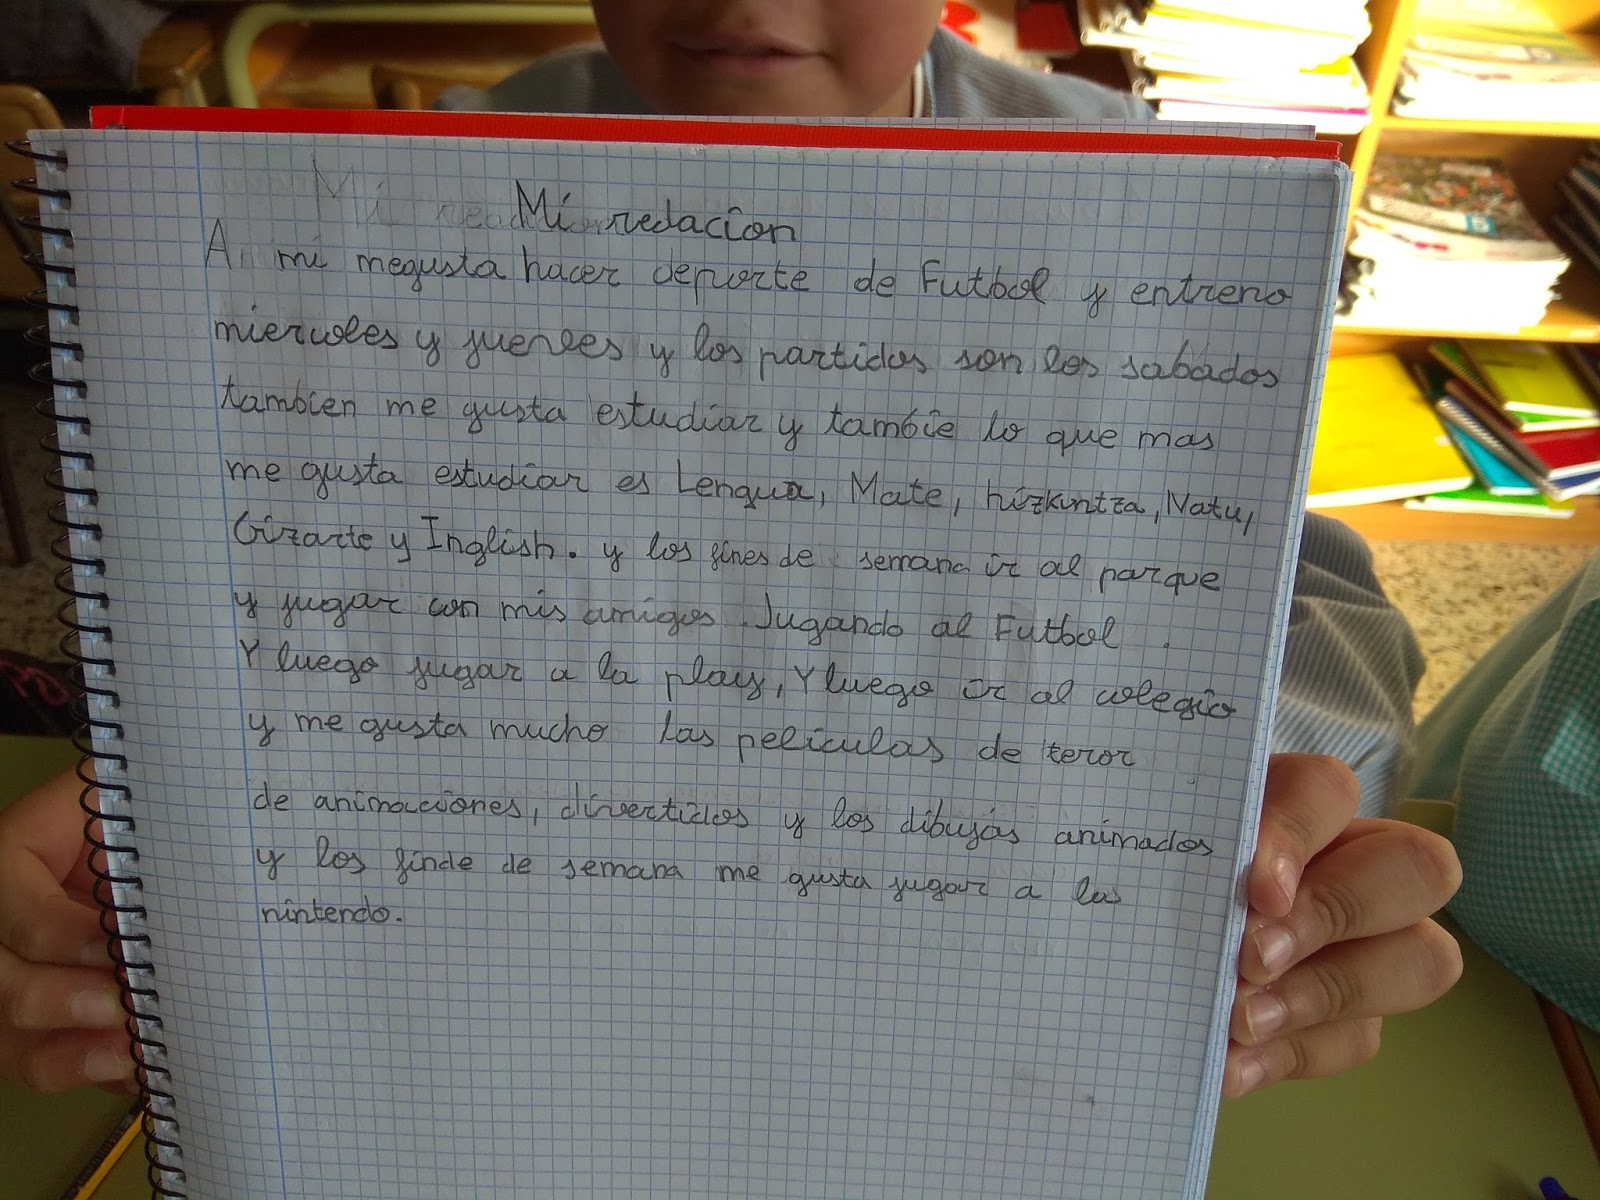 Mi redacion
A mi megusta hacer deporte de Futbol y entreno
miercoles y jueves y los partidos son los sabados
tambien me gusta estudiar y tambie lo que mas
me gusta estudiar es Lengua, Mate, hizkuntza, Natu,
Gizarte y Inglish. y los fines de semana ir al parque
y jugar con mis amigos. Jugando al Futbol.
Y luego jugar a la play, Y luego ir al colegio
y me gusta mucho las peliculas de teror
de animaciones, divertidos y los dibujos animados
y los finde de semana me gusta jugar a las
nintendo.